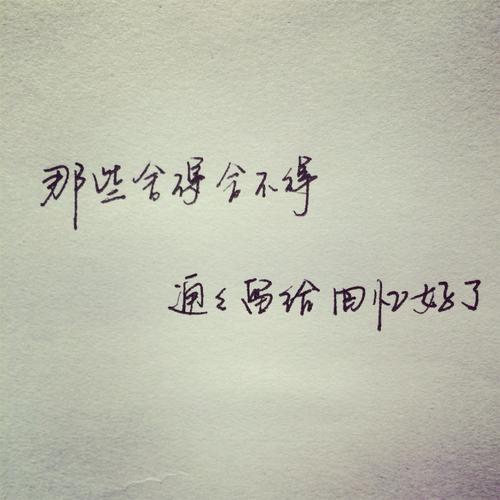 那些舍得舍不得
通々留给回忆好了